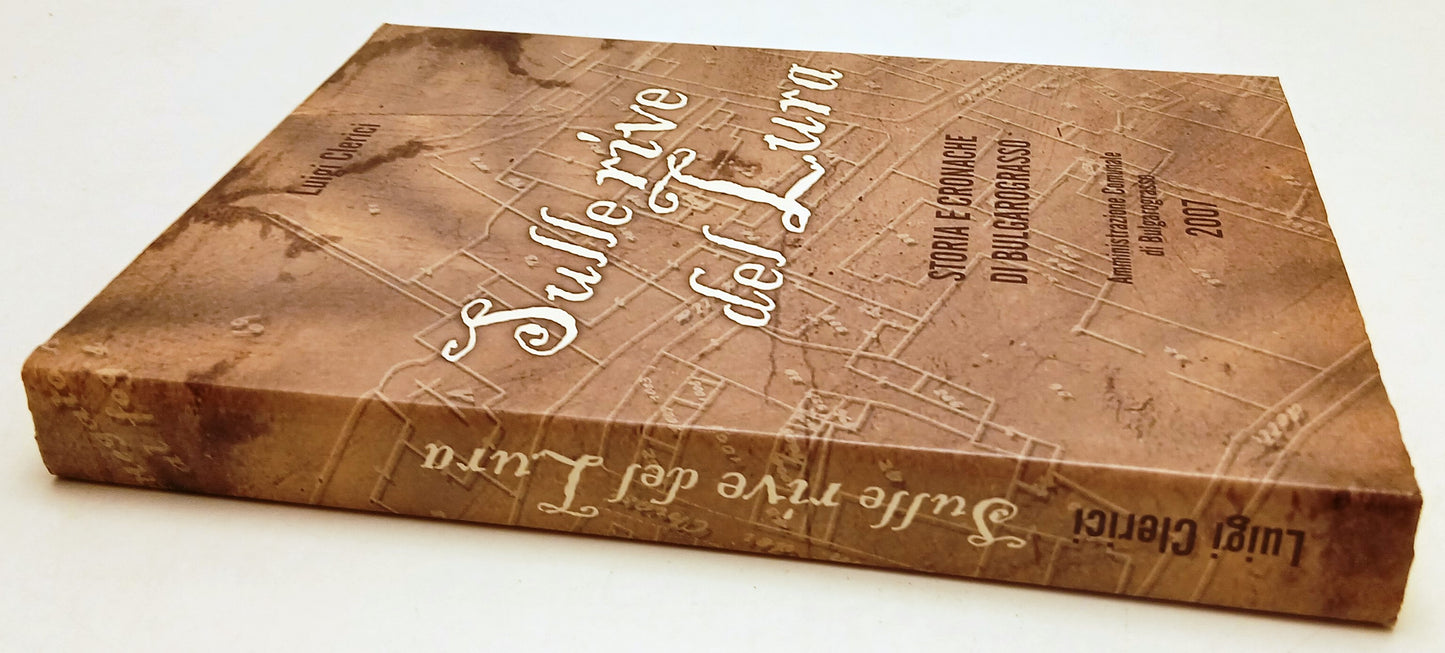 Luigi Clerici
Sulle rive
del Lura
STORIA E CRONACHE
DI BULGAROGRASSO
Amministrazione Comunale
di Bulgarograsso
2007
Luigi Clerici
Sulle rive del Lura